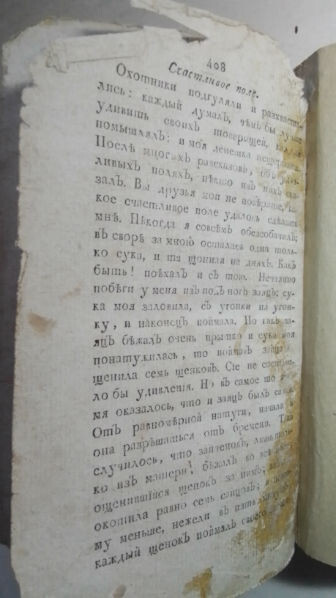 408
Счастливое поле.
Охотники подгуляли и
лись: каждый думалъ, чѣмъ бы
удивить своихъ товарищей,
помышлялъ: и моя денежка
Послѣ многихъ разсказовъ, объ
ливыхъ поляхъ, нѣкто изъ нихъ
залъ. Вы друзья мои не повѣрите,
кое счастливое поле удалось сдѣлать
мнѣ. Нѣкогда я совсѣмъ обезсобачѣлъ;
въ сворѣ за мною осталась одна толь-
ко сука, и та щонная на дняхъ. Какъ
быть! поѣхалъ и съ тою. Нечаянно
побѣги у меня изъ подъ ногъ заяцъ; су-
ка моя заловила, съ угонки на угон-
ку, и наконецъ поймала. Но какъ за-
яцъ бѣжалъ очень прытко и сука моя
понатужилась, то поймавъ зайца
щенила семь щенковъ. Сіе не
ло бы удивленія. Но въ самое то
мя оказалось, что и заяцъ былъ
Отъ равномѣрной натуги, начала
она разрѣшаться отъ бремени.
случилось, что
ко изъ матери! бѣжалъ во
ощенившійся щенокъ за нимъ;
окотила равно семь
му меньше, нежели въ
каждый щенокъ поймалъ своего